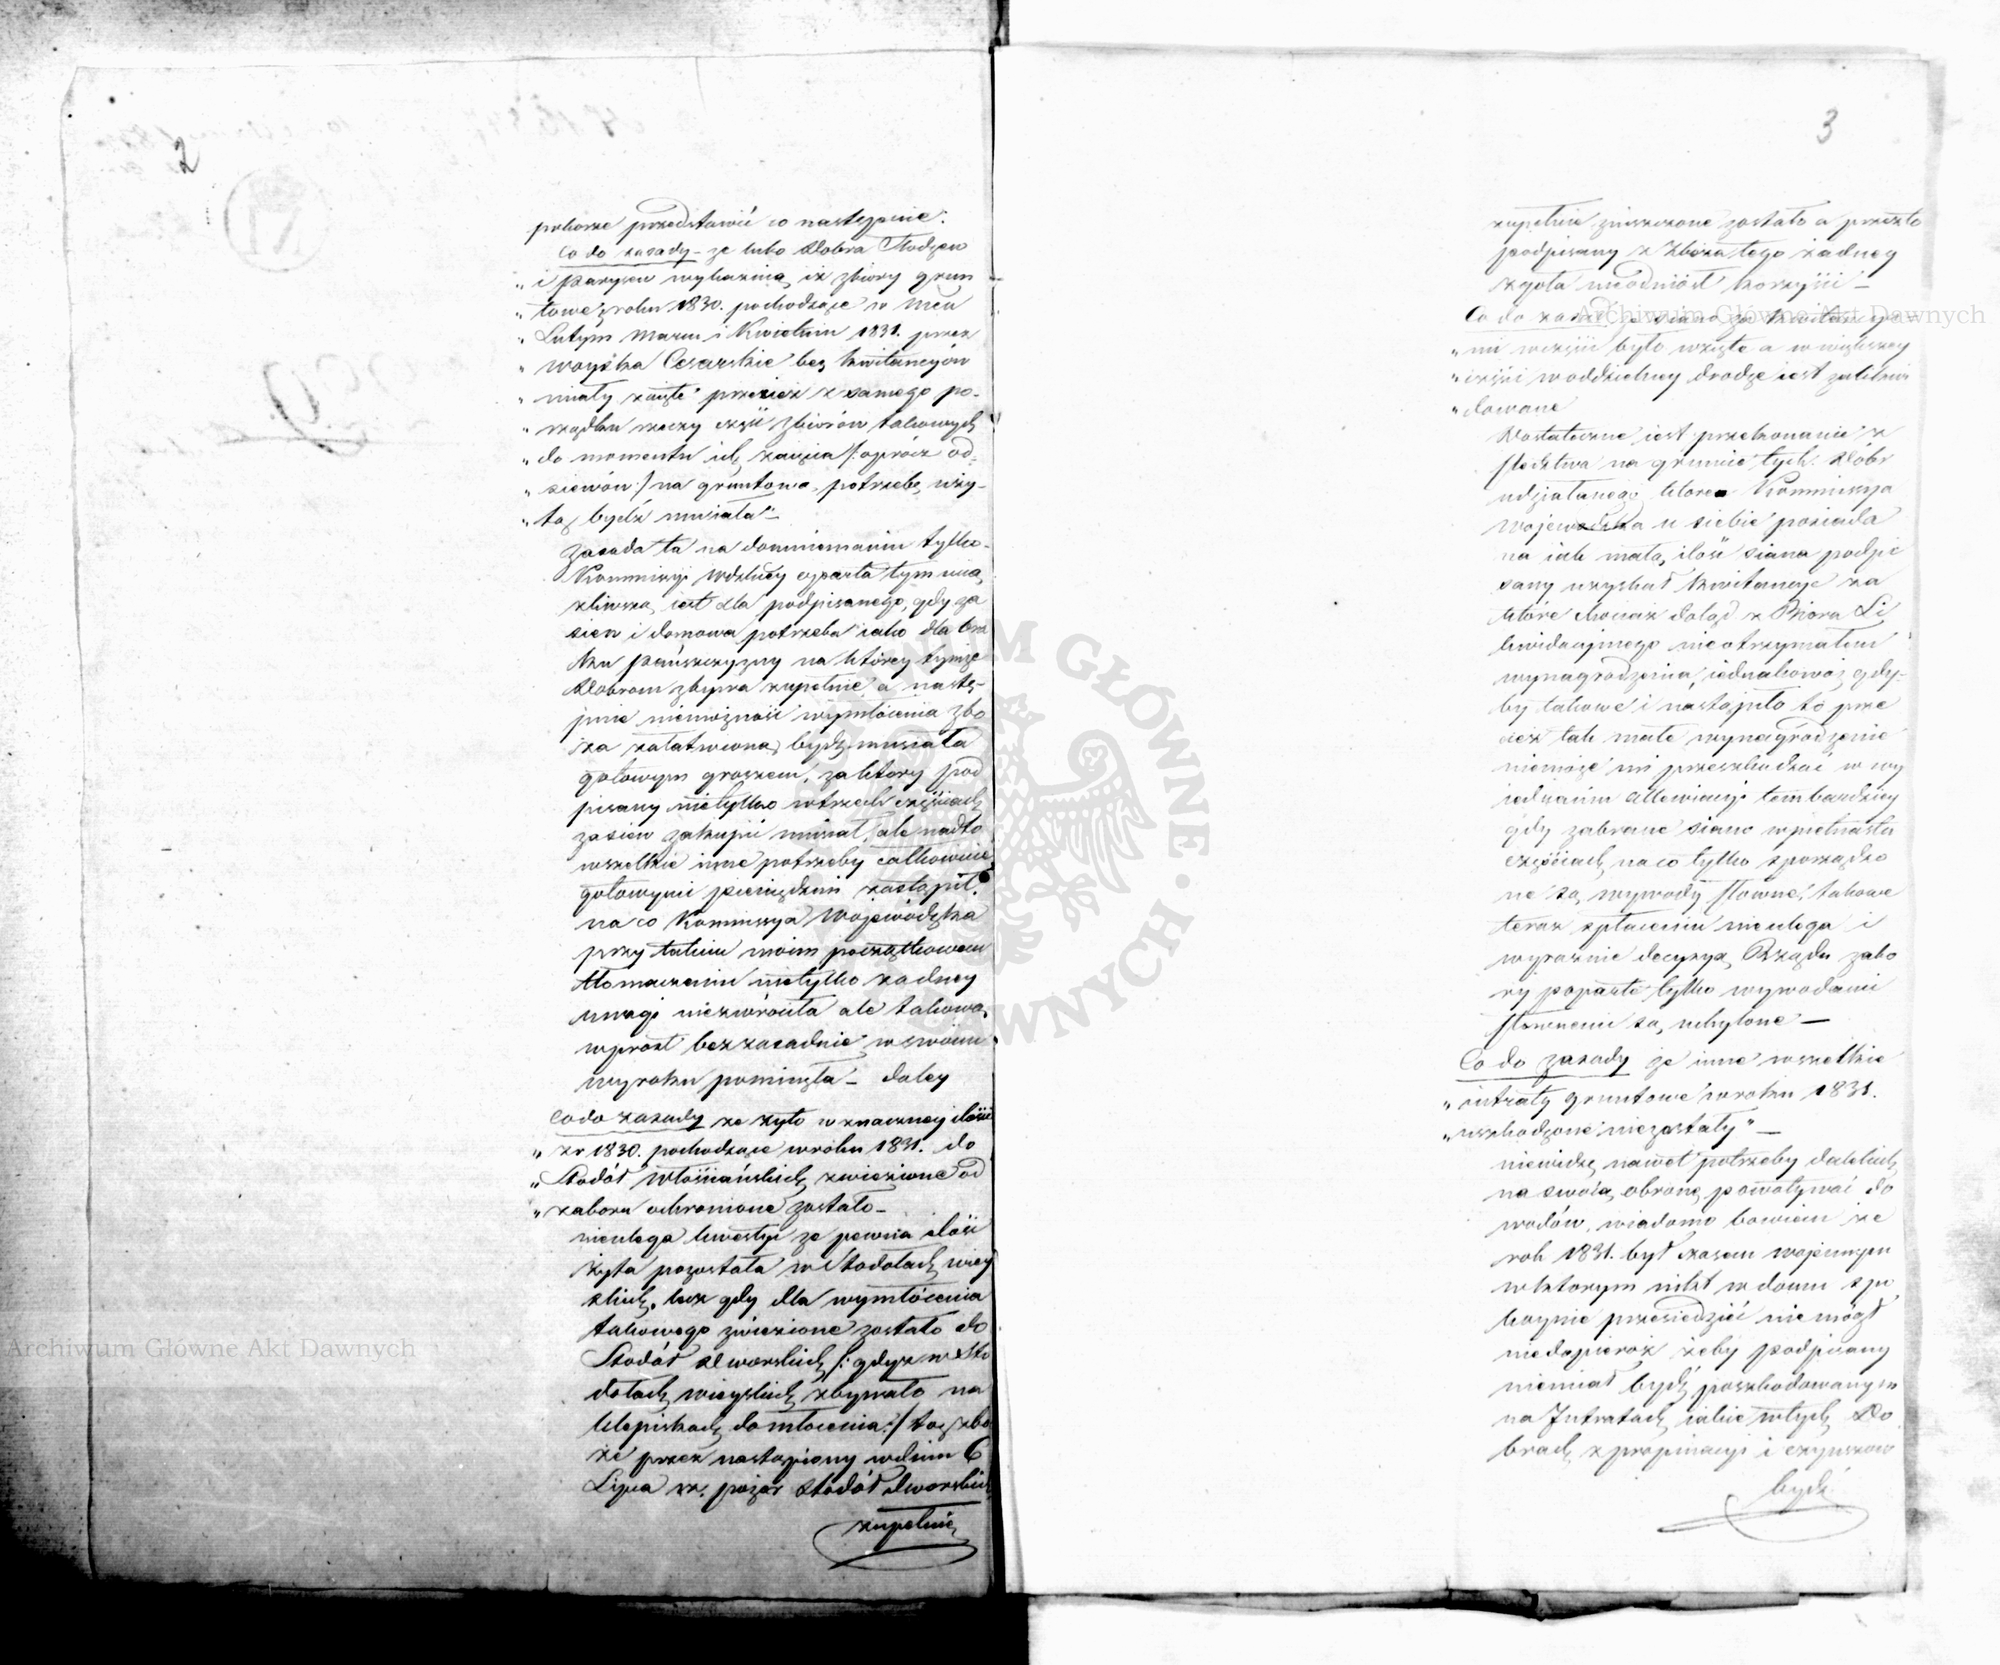 2
pokorze przedstawić co następuie:
Co do zasady – że lubo Dobra
„ i Parysew wykazuią, iż zbiory grun
„ towe z roku 1830. pochodzące w Mcu
„ Lutym Marcu i Kwietniu 1831. przez
„ woyska Cesarskie bez kwitancyów
„ miały zaięte przecież z samego po-
„ rządku rzeczy część zbiorów takowych
„ do momentu ich zaięcia /: oprócz od-
„ siewów :/ na gruntową potrzebę uży-
„ tą bydź musiała" –
Zasada ta na domniemaniu tylko
Kommissyi Wdzkiey oparta tym uciąż
żliwszą iest dla podpisanego, gdy za
siew i domowa potrzeba iako dla bra
ku pańszczyzny na którey tymże
Dobrom zbywa zupełnie, a nastę-
pnie niemożność wymłócenia zbo
ża załatwioną bydź musiała
gotowym groszem, za który pod
pisany nietylko w trzech częściach
zasiew zakupić musiał, ale nadto
wszelkie inne potrzeby całkowicie
gotowymi pieniędzmi zastąpił.
na co Kommissya Wojewódzka
przy takim moim początkowem
tłomaczeniu nietylko żadney
uwagi niezwróciła ale takową
wprost bezzasadnie w swoim
wyroku pominęła – daley
Co do zasady że żyto w znaczney ilości
„ z r 1830. pochodzące w roku 1831. do
„ Stodół włościańskich zwiezione od
„ zaboru ochronione zostało –
nieulega kwestyi że pewna ilość
żyta pozostała w Stodołach wiey
skich, lecz gdy dla wymłócenia
takowego zwiezione zostało do
Stodół dworskich /: gdyż w Sto
dołach wieyskich zbywało na
klepiskach do młócenia :/ toż zbo
że przez nastąpiony w dniu 6
Lipca r. z. pożar Stodół dworskich
zupełnie
3
zupełnie zniszczone zostało a przeto
podpisany z Zboża tego żadney
zgoła nieodniósł korzyści –
Co do zasady że siano za kwitancya
„ mi w części było wzięte a w większey
„ części w oddzielney drodze iest zalikwi
„ dowane
Dostateczne iest przekonanie z
śledztwa na gruncie tych Dóbr
udziałanego które Kommissya
Wojewódzka u siebie posiada
na iak małą ilość siana podpi
sany uzyskał kwitancye za
które chociaż dotąd z Biora Li
kwidacyjnego nieotrzymałem
wynagrodzenia, iednakowoż gdy-
by takowe i nastąpiło to prze
cież tak małe wynagrodzenie
niemoże mi przeszkadzać w wy
iednaniu allewiacyi tembardziey
gdy zabrane siano w piętnastu
częściach na co tylko sporządzo
ne są wywody słowne, takowe
teraz spłaceniu nieulega i
wyraźnie decyzyą Rządu zabo
ry poparte tylko wywodami
słownemi są uchylone –
Co do zasady że inne wszelkie
„ intraty gruntowe w roku 1831.
„ uszkodzone niezostały" –
niewidzę nawet potrzeby dalekich
na swoią obronę powoływać do
wodów, wiadomo bowiem że
rok 1831. był czasem wojennym
w którym nikt w domu spo
koynie przesiedzieć niemógł
niedopieroż żeby podpisany
niemiał bydź poszkodowanym
na Intratach iakie w tych Do
brach z propinacyi i czynszów
bydź
Archiwum Główne Akt Dawnych
Archiwum Główne Akt Dawnych
ARCHIWUM GŁÓWNE · AKT DAWNYCH ·